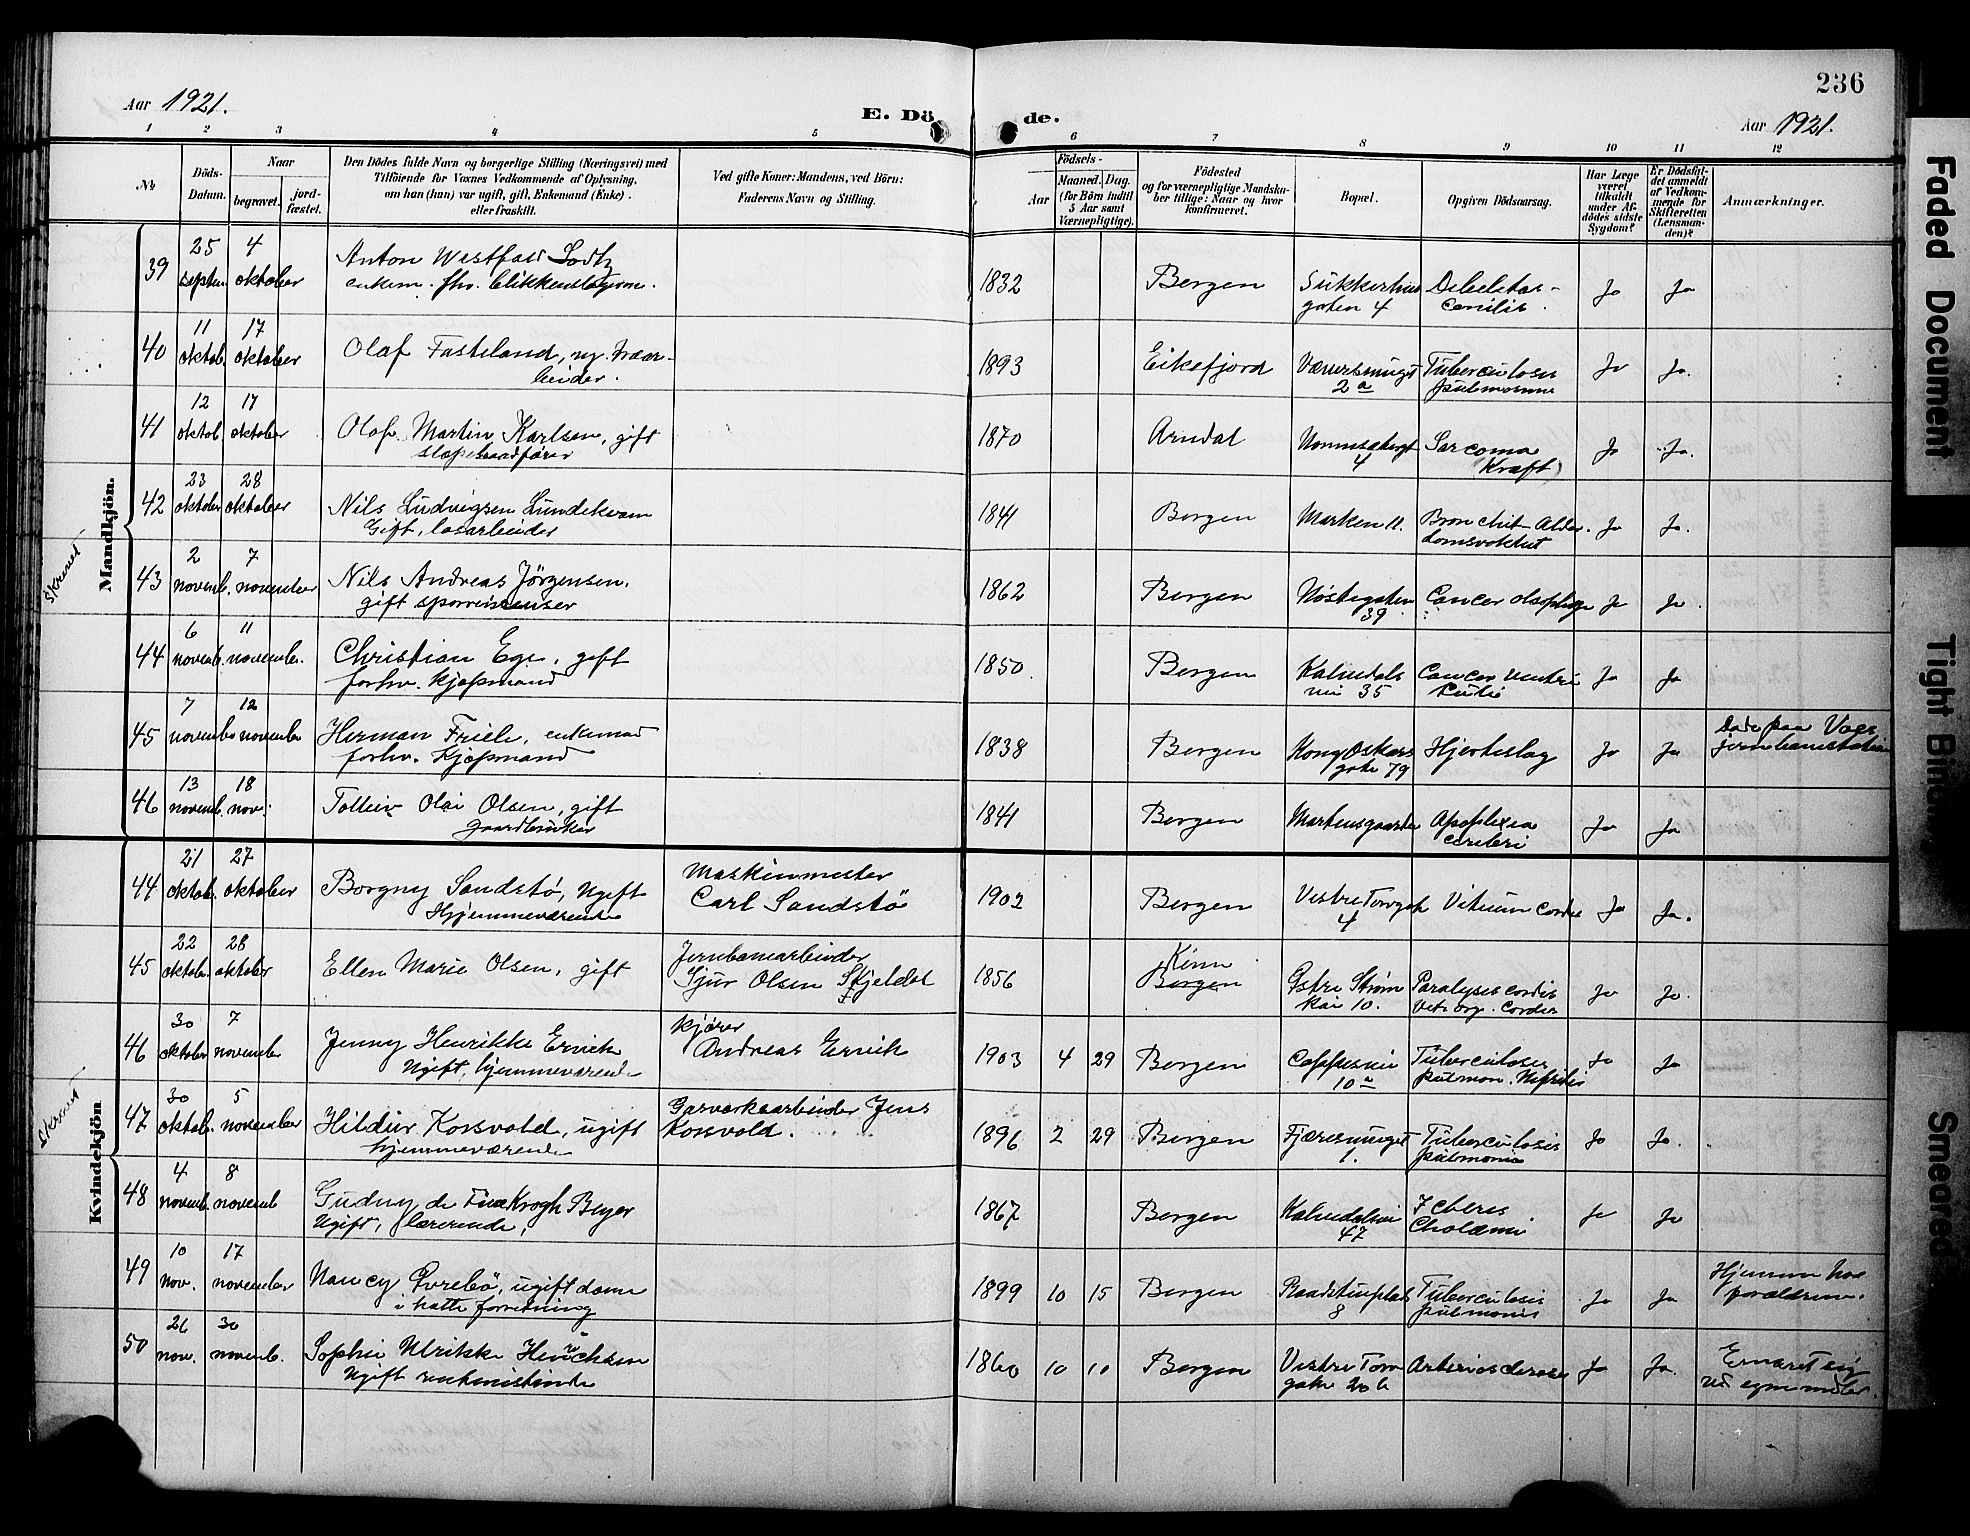 236
Aar 1921.
E. Dö de.
Aar 1921.
1 2 3 4 5 6 7 8 9 10 11 12
No
Döds-
Datum.
Naar
begravet.
jord-
fæstet.
Den Dödes fulde Navn og borgerlige Stilling (Næringsvei) med
Tilföiende for Voxnes Vedkommende af Oplysning,
om han (hun) var ugift, gift, Enkemand (Enke)
eller fraskilt.
Ved gifte Koner: Mandens, ved Börn:
Faderens Navn og Stilling.
Födsels-
Aar
Maaned. Dag.
(for Börn indtil
5 Aar samt
Værnepligtige).
Födested
og for værnepligtige Mandska-
ber tillige: Naar og hvor
konfirmeret.
Bopæl.
Opgiven Dödsaarsag.
Har Læge
været
tilkaldt
under Af-
dödes sidste
Sygdom?
Er Dödsfal-
det anmeldt
af Vedkom-
mende for
Skifteretten
(Lensman-
den)?
Anmærkninger.
Mandkjön.
39 25 septem 4 oktober
Anton Westfal
enkem. fhv. blikkenslager
1832 Bergen Sukkerhus
gaten 4
Ja Ja
40 11 oktob. 17 oktober
Olaf Fasteland, ug.
1893 Eikefjord 2a Tuberculosis
Ja Ja.
41 12 oktob 17 oktober
Olaf Martin Karlsen, gift
1870 Arndal 4 Sarcoma
(Kræft)
Ja Ja.
42 23 oktober 28 oktober
Nils Ludvigsen Lundekvam
Gift, løsarbeider
1841 Bergen Marken 11. Bronchit - Alder-
Ja Ja.
43 2 novemb. 7 november
Nils Andreas Jörgensen.
gift sporrenser
1862 Bergen Nöstegaten
39 Cancer
Ja Ja.
44 6 novemb. 11 november.
Christian Ege, gift
forhv. kjøpmand
1850 Bergen Kalvedals
vei 35 Cancer ventri
Ja Ja
45 7 novembe 12 november
Herman Friele, enkemand
forhv. kjøpmand
1838 Bergen Kong Oskars
gate 79 Hjerteslag
Ja Ja
Døde paa Voss
jernbanestation
46 13 novemb 18 nov.
Tolleiv Olai Olsen, gift
gaardbruker
1841 Bergen Apoplexia
cerebri
Ja Ja
Kvindekjön
44 21 oktob. 27 oktober
Borgny Sandstö, ugift
Hjemmeværende
Maskinmester
Carl Sandstö
1902 Bergen Vestre Torvgt
4 Vitium cordis
Ja Ja.
45 22 oktober 28 oktober
Ellen Marie Olsen, gift
Jernbanearbeider
Sjur Olsen Skjeldet
1856 Kinn
Bergen
Østre Strøm
kai 10. Paralysis cordis
Vit. org. Cordis
Ja Ja.
46 30 oktober 7 november
Jenny Henrikke Ervik
Ugift, hjemmeværende
kjører
Andreas Ervik
1903 4 29 Bergen
10a Tuberculoses
pulmon. Nefritis
Ja Ja
47 30 oktob. 5 november
Hildur Korsvold, ugift
hjemmeværende
Gasverksarbeider Jens
Korsvold.
1896 2 29 Bergen Fjæresmuget
1. Tuberculosis
pulmonis
Ja Ja.
48 4 novemb. 8 novemb
Gudny de Fine Krogh Beyer
Ugift, lærerinde,
1867 Bergen Kalvedalsvei
47 Icterus
Cholæmi
Ja Ja
49 10 nov. 17 november
Nancy Øvrebö, ugift dame
i hatteforretning
1899 10 15 Bergen Raadstuplads
8 Tuberculosis
pulmonis
Ja Ja
Hjemme hos
forældrene.
50 26 nov. 30 novemb.
Sophie Ulrikke Henrichsen
Ugift
1860 10 10 Bergen Vestre Torv
gate 20 b Arteriosclerose
Ja Ja.
Ernæret sig
ved egne midler.
Skrevet
Skrevet
Faded Document
Tight Bin
Smeared